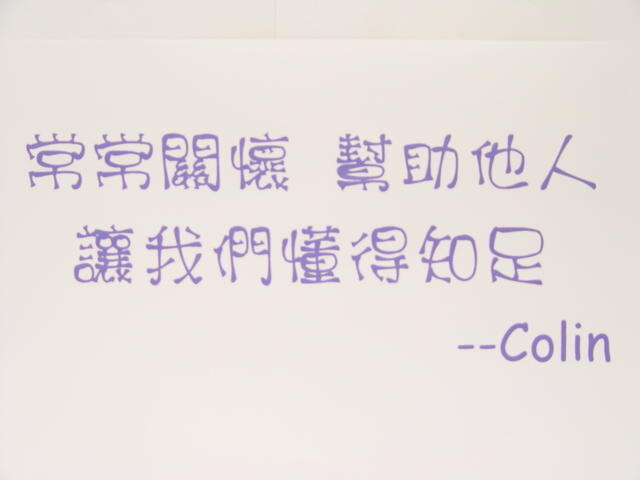 常常關懷 幫助他人
讓我們懂得知足
--Colin